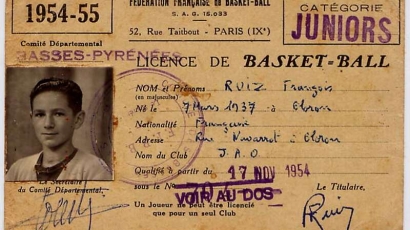 1954-55
FÉDÉRATION FRANÇAISE DE BASKET-BALL
S. A. G. 15.033
52, Rue Taitbout - PARIS (IXᵉ)
CATÉGORIE
JUNIORS
Comité Départemental
BASSES-PYRÉNÉES
LICENCE DE BASKET-BALL
NOM et Prénoms RUIZ François
(en majuscules)
Né le 7 Mars 1937 à Oloron
Nationalité Française
Adresse Rue Navarrot à Oloron
Nom du Club J.A.O
Qualifié à partir du 17 NOV 1954
sous le N°
VOIR AU DOS
Le Secrétaire
du Comité Départemental,
Le Titulaire,
Un Joueur ne peut être licencié
que pour un seul Club
Ruiz